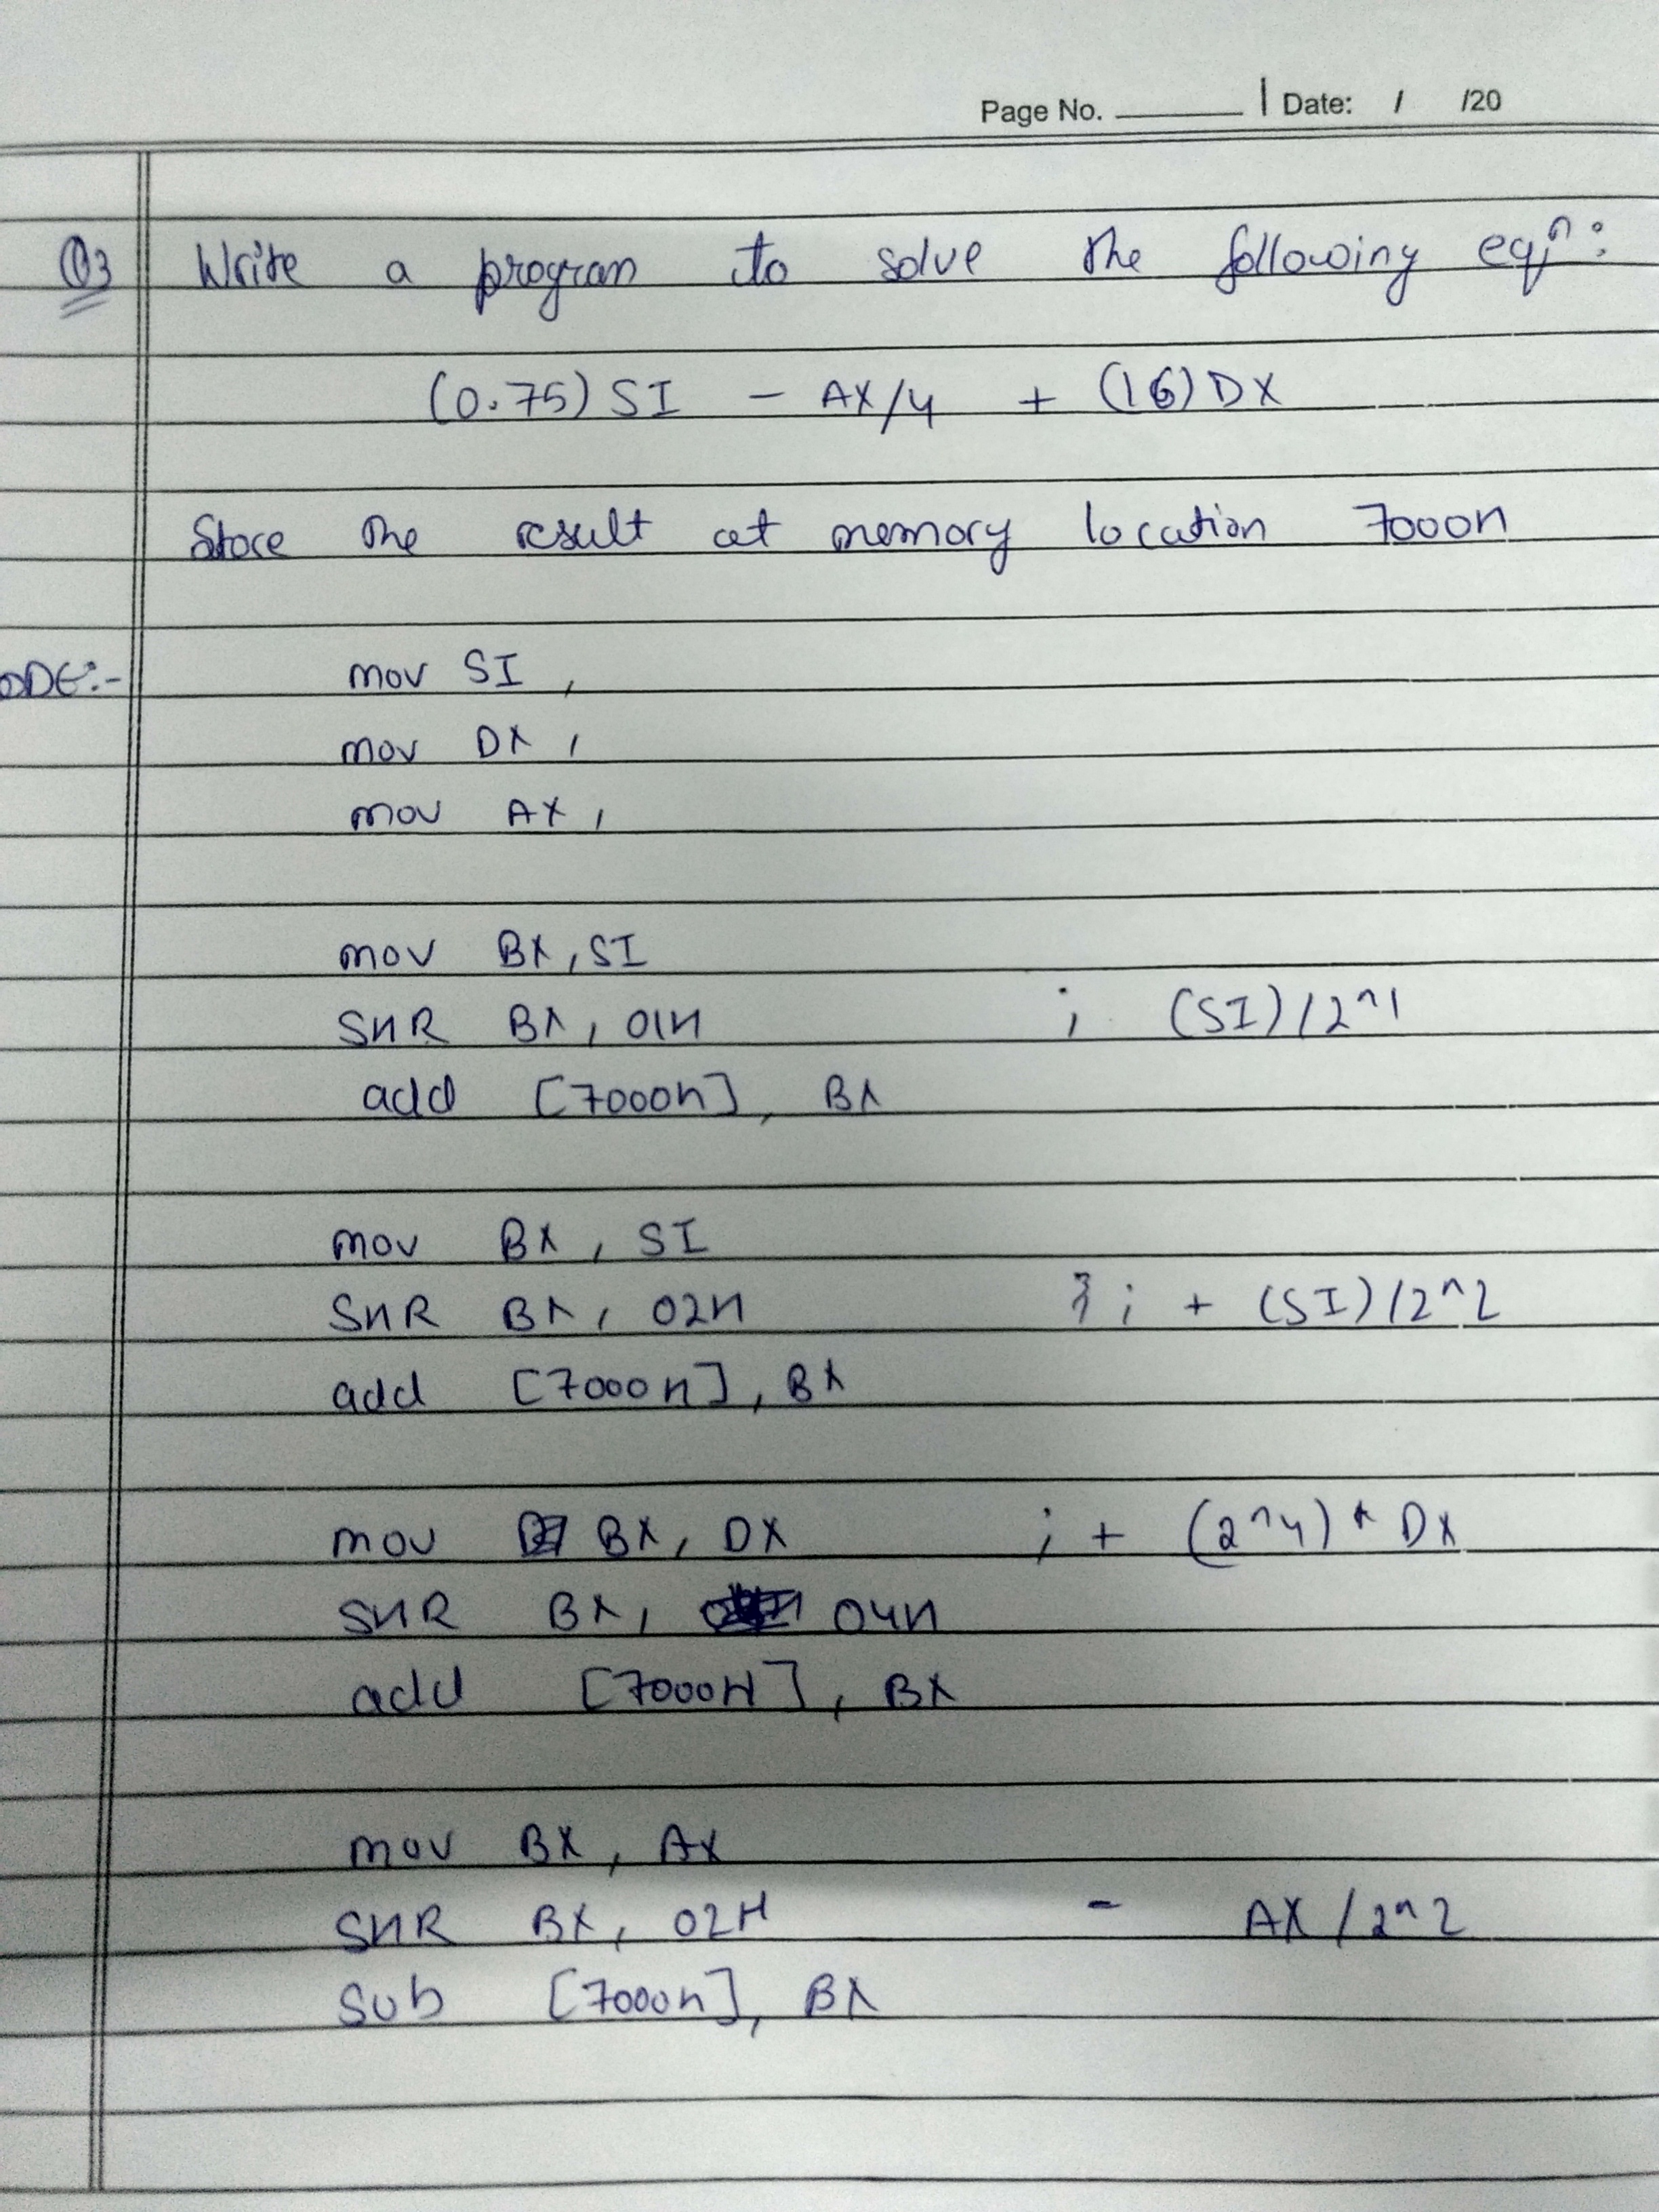 Page No. ______ | Date: / /20
Q3 Write a program to solve the following eqⁿ:
(0.75) SI - AX/4 + (16) DX
Store the result at memory location 7000H
ODE:- mov SI,
mov DX,
mov AX,
mov BX, SI
SHR BX, 01H ; (SI)/2^1
add [7000H], BX
mov BX, SI
SHR BX, 02H ; + (SI)/2^2
add [7000H], BX
mov BX, DX ; + (2^4) * DX
SHR BX, 04H
add [7000H], BX
mov BX, AX
SHR BX, 02H - AX/2^2
Sub [7000H], BX